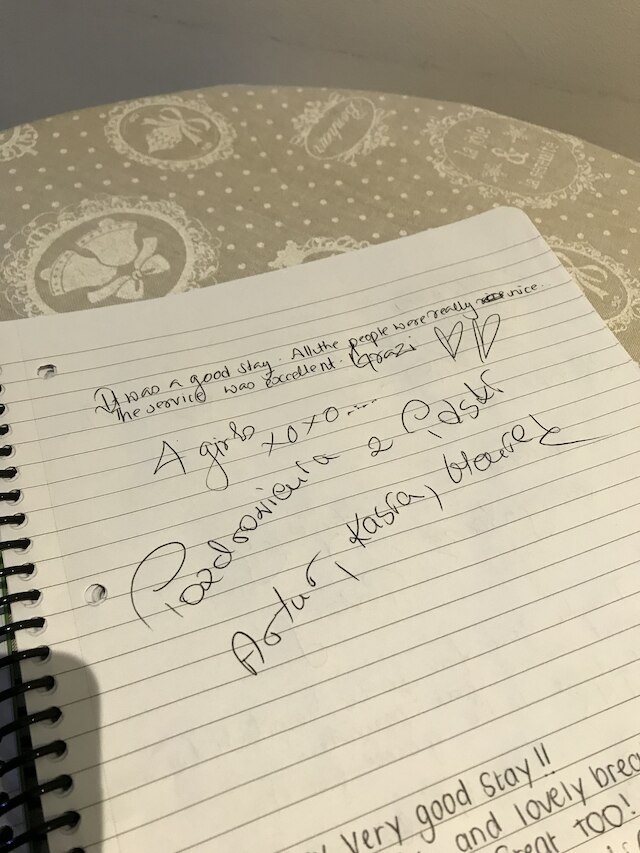 It was a good stay. All the people were really nice.
The service was excellent. Grazi
4 girls xoxo....
Pozdrowienia z Polski
Artur, Kasia,
Very good stay!!
and lovely
TOO!
la vie
&